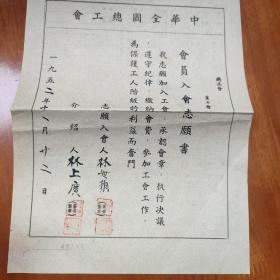 中華全國總工會
會員入會志願書
我志願加入工會，承認會章，執行决議
，遵守紀律，繳納會費，參加工會工作，
為保護工人階級的利益而奮鬥
志願入會人林
介紹人林上廣
一九五二年十一月廿二日